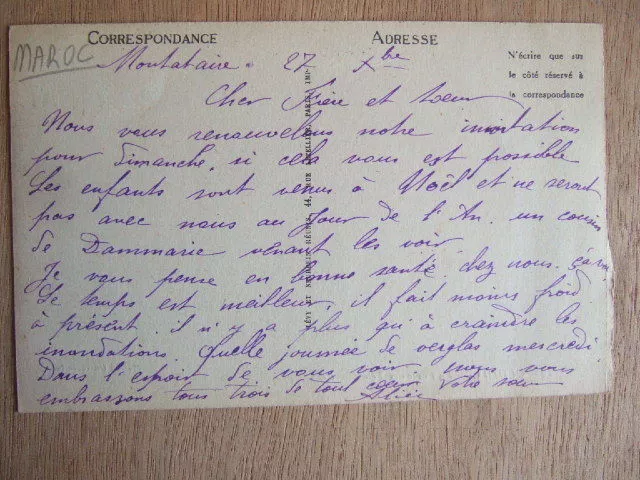 CORRESPONDANCE
ADRESSE
MAROC
N'écrire que sur
le côté réservé à
la correspondance
Montataire 27 Xbre
Cher Frère et Soeur
Nous vous renouvellons notre invitation
pour Dimanche, si cela vous est possible
Les enfants sont venus à Noël et ne seront
pas avec nous au Jour de l'An. un cousin
de Dammarie venant les voir
Je vous pense en bonne santé. chez nous. ça va
Le temps est meilleur, il fait moins froid
à présent. il n'y a plus qu'à craindre les
inondations. Quelle journée de verglas mercredi
Dans l'espoir de vous voir nous vous
embrassons tous trois de tout coeur Votre soeur
LÉVY ET NEURDEIN RÉUNIS, 44, RUE LETELLIER, PARIS IMP.